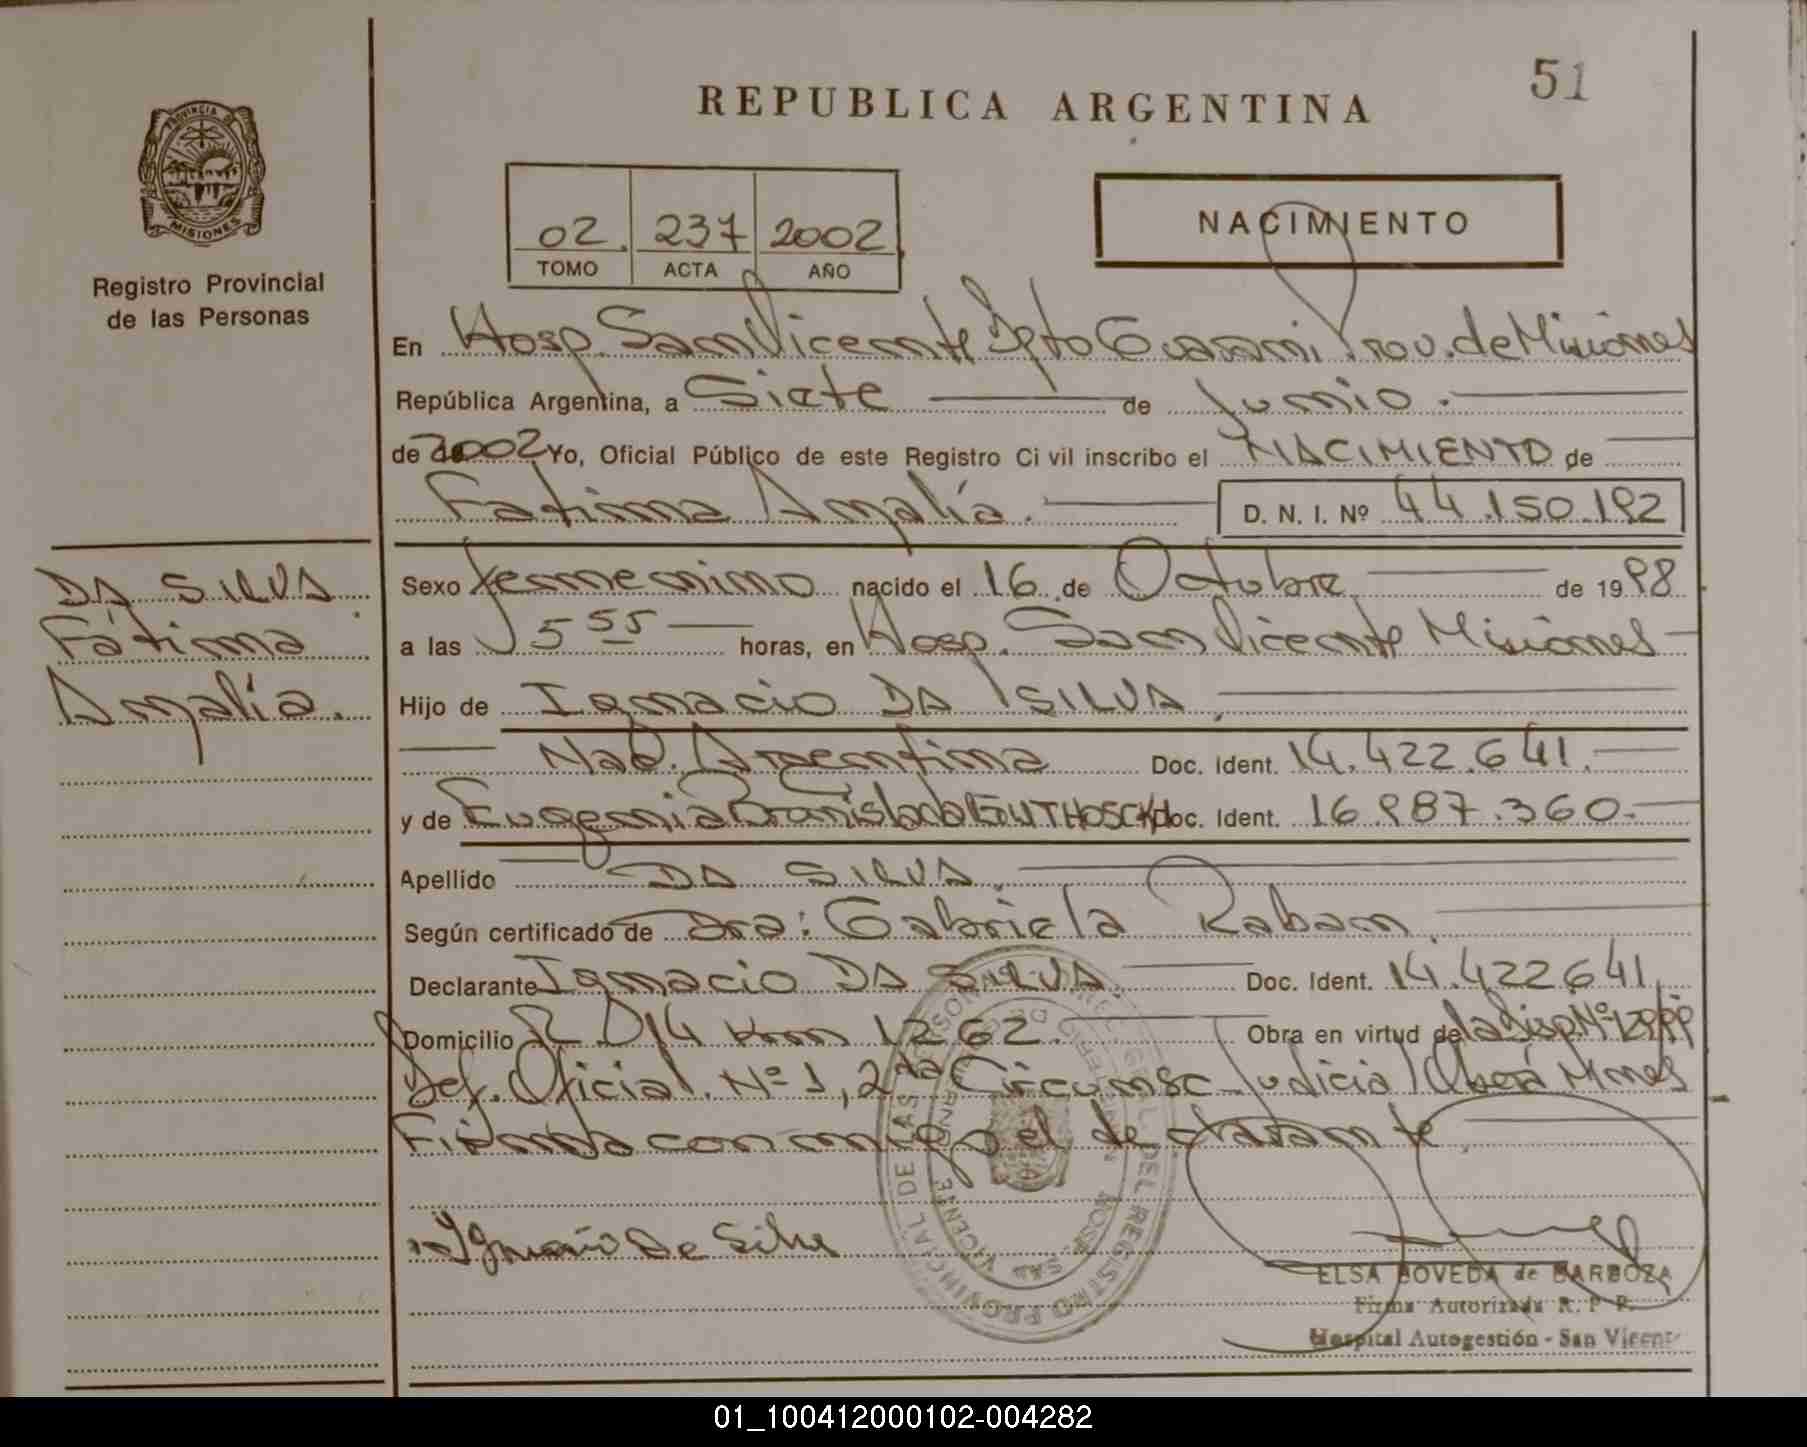 51
REPUBLICA ARGENTINA
PROVINCIA DE MISIONES
Registro Provincial
de las Personas
02. 237 2002
TOMO ACTA AÑO
NACIMIENTO
En Hosp. San Vicente Dpto Guarani Prov. de Misiones
República Argentina, a Siete de Junio.
de 2002 Yo, Oficial Público de este Registro Civil inscribo el NACIMIENTO de
Fatima Amalía. D. N. I. Nº 44.150.192
DA SILVA
Fátima
Amalía.
Sexo femenino nacido el 16 de Octubre de 1998
a las 5 55 horas, en Hosp. San Vicente Misiones
Hijo de Ignacio DA SILVA.
Nac. Argentina Doc. Ident. 14.422.641.
y de Eugenia Branislada Doc. Ident. 16.987.360.
Apellido DA SILVA.
Según certificado de Dra: Gabriela Raban.
Declarante Ignacio DA SILVA. Doc. Ident. 14.422641.
Domicilio R. 14 Km 1262. Obra en virtud de la Disp. Nº
Def. Oficial. Nº 1, 2da Circunsc. Judicial Oberá Mnes
Firma conmigo el declarante.
Ignacio Da Silva
REGISTRO PROVINCIAL DE LAS PERSONAS
HOSP. SAN VICENTE
ELSA BOVEDA de BARBOZA
Firma Autorizada R. P. P.
Hospital Autogestión - San Vicente
01_100412000102-004282